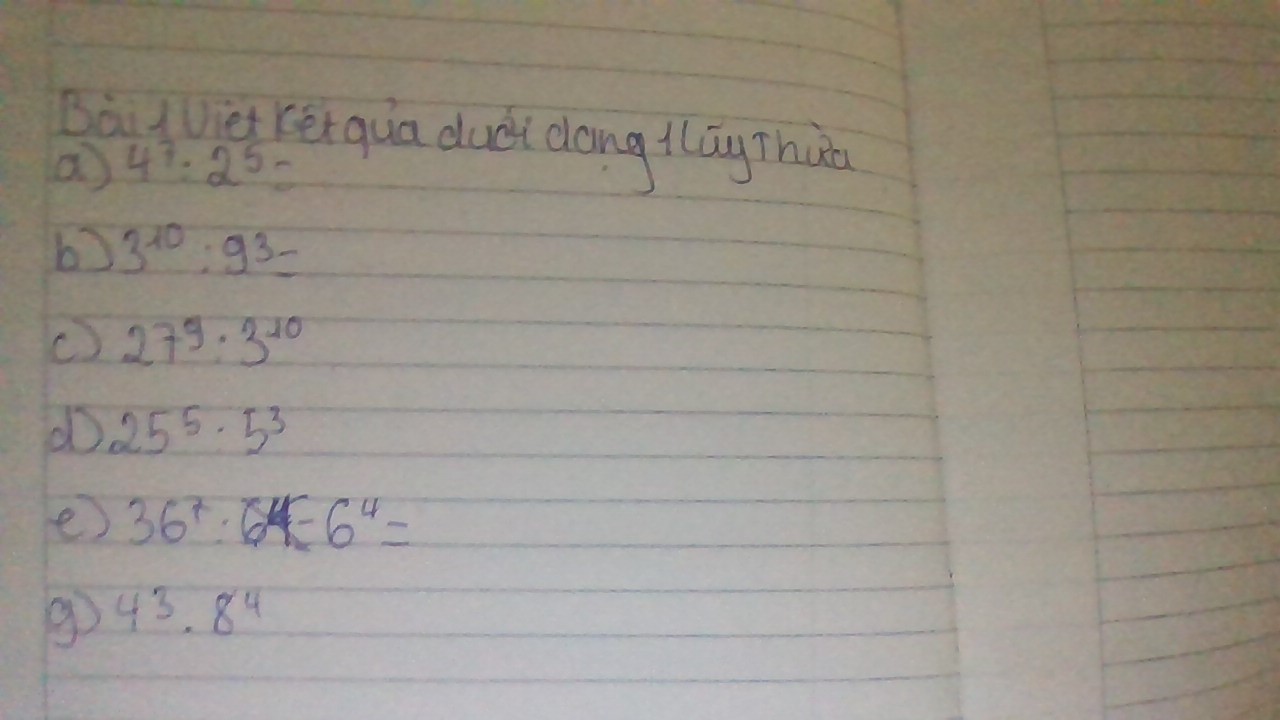 Bài 1 Viết Kết quả dưới dạng 1 lũy Thừa
a) 4⁷ : 2⁵ =
b) 3¹⁰ : 9³ =
c) 27⁹ : 3¹⁰
d) 25⁵ . 5³
e) 36⁷ : 6⁴ =
g) 4³ . 8⁴